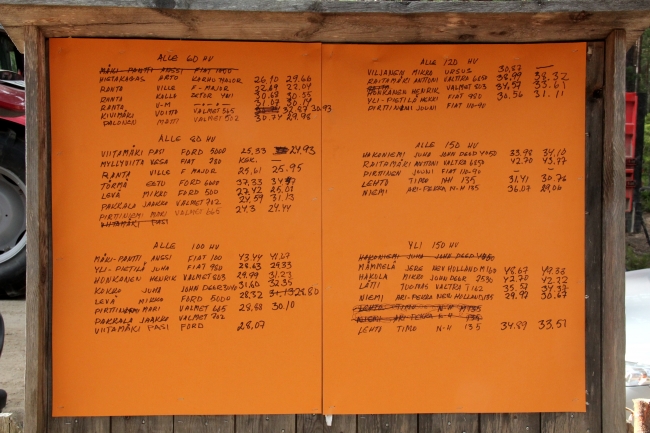 ALLE 60 HV
MÄKI-PANTTI ANSSI FIAT
HIETAKANGAS ARTO KARHU MAJOR 26,10 29.66
RANTA VILLE F-MAJOR 22.04
RANTA KALLE ZETOR 30.68 30.55
RANTA V-M 31.07 30.14
KIVIMÄKI VOITTO VALMET 565 32.87 30.93
PALONEN MATTI VALMET 502 30.74 29.98
ALLE 80 HV
VIITAMÄKI PASI FORD 5000 25,33 24,93
MYLLYVIITA VESA FIAT 780 KES.
RANTA VILLE F MAJOR 25,61 25.95
TÖRMÄ EETU FORD 6610 37,33
LEVÄ MIKKO FORD 500 27,42 25,01
PAKKALA JAAKKO VALMET 702 24,59 31,13
PIRTINIEMI MARI VALMET 665 24.3 24.44
VIITAMÄKI PASI
ALLE 100 HV
MÄKI-PANTTI ANSSI FIAT 100 43,44 41,07
YLI-PIETILÄ JUHA FIAT 980 28.63 29.33
HONKANEN HENRIK VALMET 803 29.99 31.23
KOKKO JUHA JOHN DEERE 31,60 32,35
LEVÄ MIKKO FORD 5000 28,32 28.80
PIRTINIEMI MARI VALMET 665 28,68 30,10
PAKKALA JAAKKO VALMET 702
VIITAMÄKI PASI FORD 28,07
ALLE 120 HV
VILJANEN MIKKO URSUS 30.87 —
RAITAMÄKI ANTTONI VALTRA 6650 38,99 38.32
HONKANEN HENRIK VALMET 803 34,57 33.61
YLI-PIETILÄ MIKKO FIAT 980 30,56 31.11
PIRTINIEMI JOUNI FIAT 110-90
ALLE 150 HV
HAKONIEMI JUHA JOHN DEER 4250 33.98 34,10
RAITAMÄKI ANTTONI VALTRA 6650 42.70 43,77
PIRTINIEMI JOUNI FIAT 110-90 — —
LEHTO TIMO NH 135 31,41 30.76
NIEMI ARI-PEKKA N-H 135 36,07 29,06
YLI 150 HV
HAKONIEMI JUHA JOHN DEER
MÄMMELÄ JERE NEW HOLLAND M160 48,67 49,36
HAKOLA MIKKO JOHN DEER 2530 42.70 42.22
LATTI TUOMAS VALTRA T162 35,51 34.33
NIEMI ARI-PEKKA NEW HOLLAND 135 29.92 30.67
LEHTO TIMO N-H 135
NIEMI ARI-PEKKA N-H 135
LEHTO TIMO N-H 135 34.89 33,51